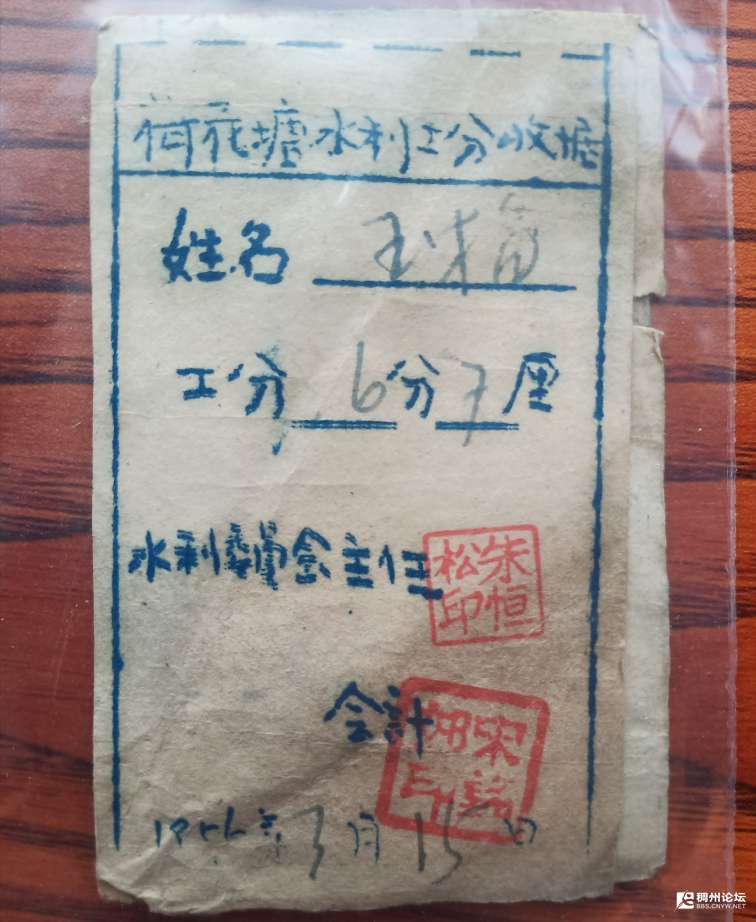 荷花塘水利工分收据
姓名 玉
工分 6分7厘
水利委員会主任
朱恒松印
会計
宋
印
1956年3月15日
稠州论坛
BBS.CNYW.NET